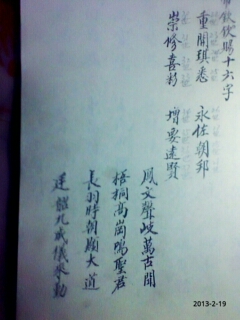 十六字
重開琪 永佐朝邦
崇修喜 增要達賢
鳳文聲岐萬古聞
梧桐高崗鳴聖君
長羽時朝顯大道
韶九成儀來勳
2013-2-19